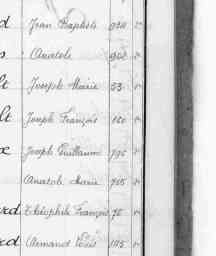 d Jean Baptiste
s Anatole
lt Joseph Marie 53
lt Joseph François 160
x Joseph Guillaume 795
Anatole Marie
ard Théophile François 76
rd Armand Louis 1115